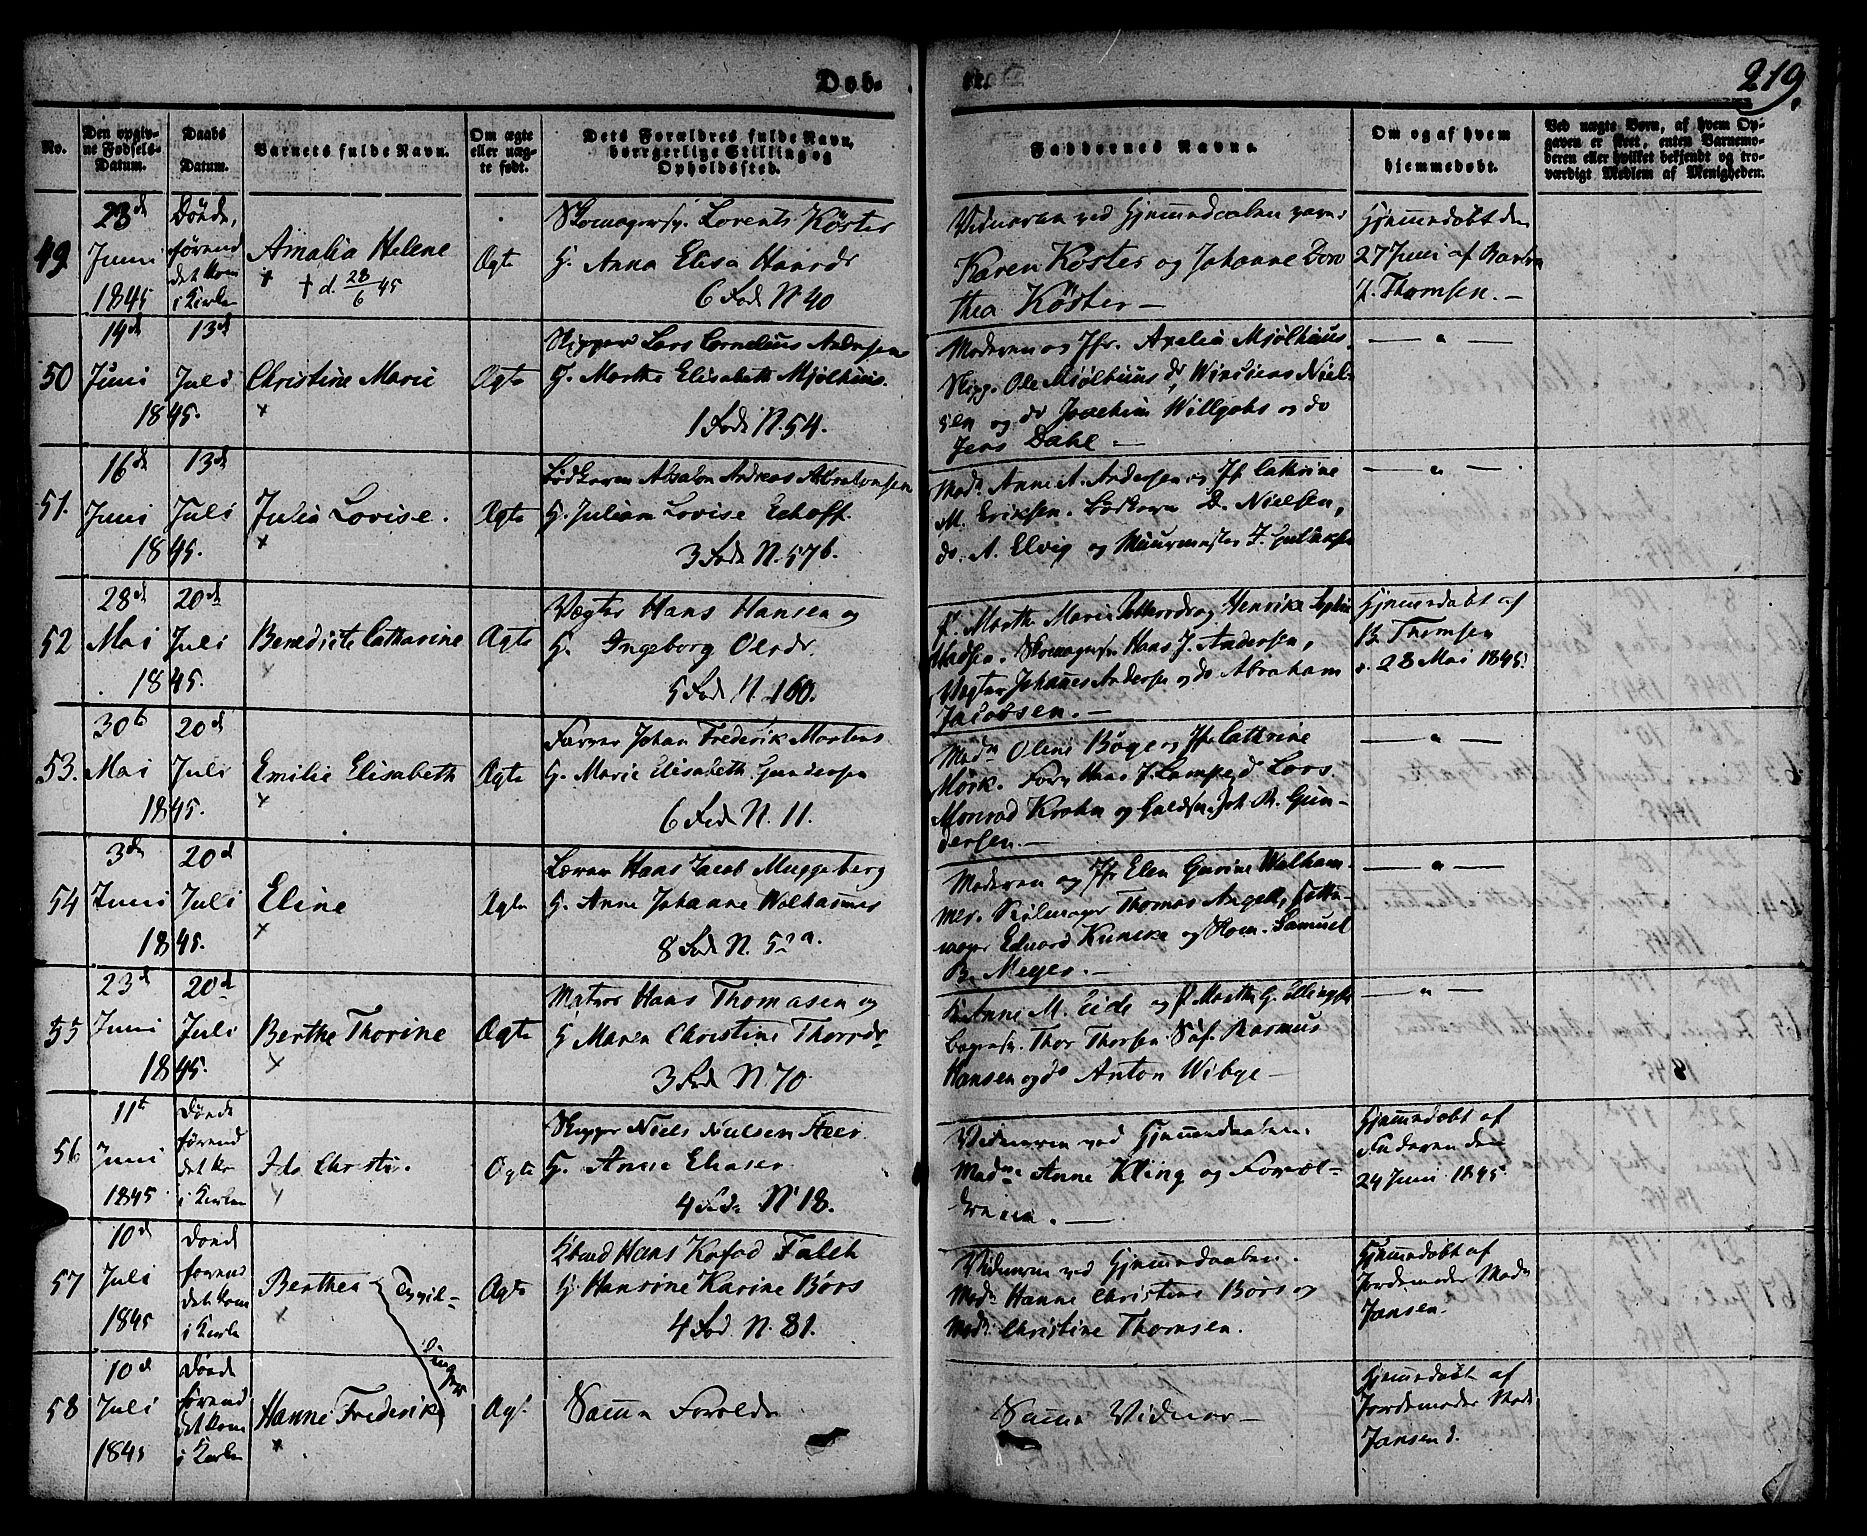 Døb-
te.
219.
No.
Den opgiv-
ne Fødsels-
Datum.
Daabs
Datum.
Barnets fulde Navn.
Om ægte
eller uæg-
te født.
Dets Forældres fulde Navn,
borgerlige Stilling og
Opholdssted.
Faddernes Navne.
Om og af hvem
hjemmedøbt.
Ved uægte Børn, af hvem Op-
gaven er skeet, enten Barnemo-
deren eller hvilket bekjendt og tro-
værdigt Medlem af Menigheden.
49
23de
Juni
1845
Dönde,
förend
det kom
i Kirken
Amalia Helene
† d. 28/6 45
Ægte
Skomagersv. Lorents Köster
H. Anna Elisa Haardr
6 Fode N 40
Vidnerne ved Hjemmedaaben vare:
Karen Köster og Johanne Doro
thea Köster —
Hjemmedöbt den
27 Juni af Barbra
Thomsen. —
50
14de
Juni
1845.
13de
Juli
Christine Marie
Ægte
Skipper Lars Cornelius Andersen
H. Marthe Elisabeth Mjölhuus.
1 Fode N. 54.
Moderen og Jfr. Axelia Mjölhuus,
Skipp. Ole Mjölhuus, do Winsiens Niel-
sen og do Joachim Willgohs og do
Jens Dahl —
— " —
51.
16de
Juni
1845.
13de
Juli
Julia Lovise.
Ægte
Bödkeren Absalon Andreas Absalonsen
H. Juliane Lovise Echoff.
3 Fode N. 57b.
Mad. Anne A. Andersen og Jf Cathrine
M. Eriksen. Bödkern D. Nielsen,
do. A. Elvig og Muurmester J.
— " —
52
28de
Mai
1845.
20de
Juli
Benedicte Catharine
Ægte
Vægter Hans Hansen og
H. Ingeborg Olsdr
5 Fode N. 160.
P. Marthe Marie og Henrike Sophie
Madsen. Skomagersv Hans J. Andersen,
Vægter Johannes Andersen og do Abraham
Jacobsen. —
Hjemmedöbt af
B. Thomsen
d. 28 Mai 1845.
53.
30te
Mai
1845.
20de
Juli
Emilie Elisabeth
Ægte
Farver Johan Frederik Mortens
H. Marie Elisabeth Gundersen
6 Fode N. 11.
Madm Oleni Böge og Jfr Cathrine
Mörk. Farv Hans J. Lampe, d Lars
Monrad Krohn og Guldsm. Joh. R. Gun-
dersen. —
— " —
54
3de
Juni
1845.
20d
Juli
Eline
Ægte
Lærer Hans Jacob Muggeberg
H. Anne Johanne Walhammer
8 Fode N. 52a.
Moderen og Jfr Elen Gurine Walham-
mer. Seilmager Thomas Angell, Potte-
mager Eduard Kuneke og Skom. Samuel
B. Meyer. —
— " —
55
23d
Juni
1845.
20de
Juli
Berthe Thorine
Ægte
Matros Hans Thomasen og
H Maren Christine Thorsdr
3 Fode N 70
K. Anne M. Eide og P Marthe G. Ellingsdr
Bagersv. Thor Thorsen. Söf. Rasmus
Hansen og do Anton Wibye —
— " —
56
11te
Juni
1845
Dönde
förend
det kom
i Kirken
Ida Christi.
Ægte
Skipper Niels Nielsen Steer.
H. Anne Eliaser
4 Fode N 18.
Vidnerne ved Hjemmedaaben.
Madme Anne Kling og Foræl-
drene. —
Hjemmedöbt af
Faderen den
24 Juni 1845.
57
10d
Juli
1845
Dönde
förend
det kom
i Kirken
Berthea
Tvvil-
linger
Ægte
Hans Kofod Falch
H. Hansine Karine Börs
4 Fod. N. 81.
Vidnerne ved Hjemmedaaben.
Madm Hanne Christine Börs og
Madm Christine Thomsen.
Hjemmedöbt af
Jordemoder Madm
Jansen.
58
10d
Juli
1845
Dönde
förend
det kom
i Kirken
Hanne Frederikke
Ægt.
Samme Foreldre
Samme Vidner —
Hjemmedöbt af
Jordemoder Madm
Jansen d.